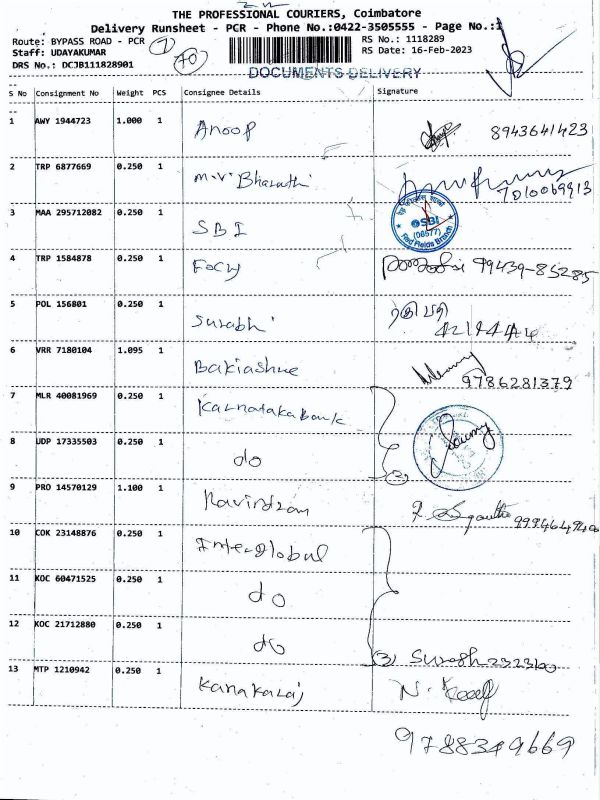 THE PROFESSIONAL COURIERS, Coimbatore
Delivery Runsheet - PCR - Phone No.:0422-3505555 - Page No.:1
Route: BYPASS ROAD - PCR
RS No.: 1118289
Staff: UDAYAKUMAR
RS Date: 16-Feb-2023
DRS No.: DCJB111828901
70
DOCUMENTS DELIVERY
S No Consignment No Weight PCS Consignee Details Signature
1 AWY 1944723 1.000 1 Anoop 8943641423
2 TRP 6877669 0.250 1 M.V. Bharathi 7010069913
3 MAA 295712082 0.250 1 SBI
SBI
(08577)
Red Fields Branch
4 TRP 1584878 0.250 1 99439-85285
5 POL 156801 0.250 1 Surabhi
6 VRR 7180104 1.095 1 9786281379
7 MLR 40081969 0.250 1 Karnataka bank
8 UDP 17335503 0.250 1 do
2
9 PRO 14570129 1.100 1
10 COK 23148876 0.250 1 Interglobal
11 KOC 60471525 0.250 1 do
12 KOC 21712880 0.250 1 do
3 Suresh
13 MTP 1210942 0.250 1 Kanakaraj
9788349669